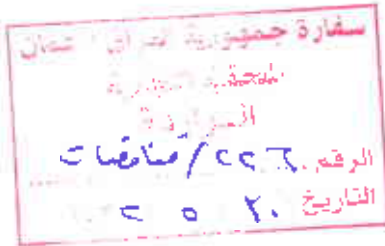 سفارة جمهورية العراق / عمان
الملحقية التجارية
الواردة
الرقم ٢٢٦/مناقصات
التاريخ ٢٠ ٥ ٢